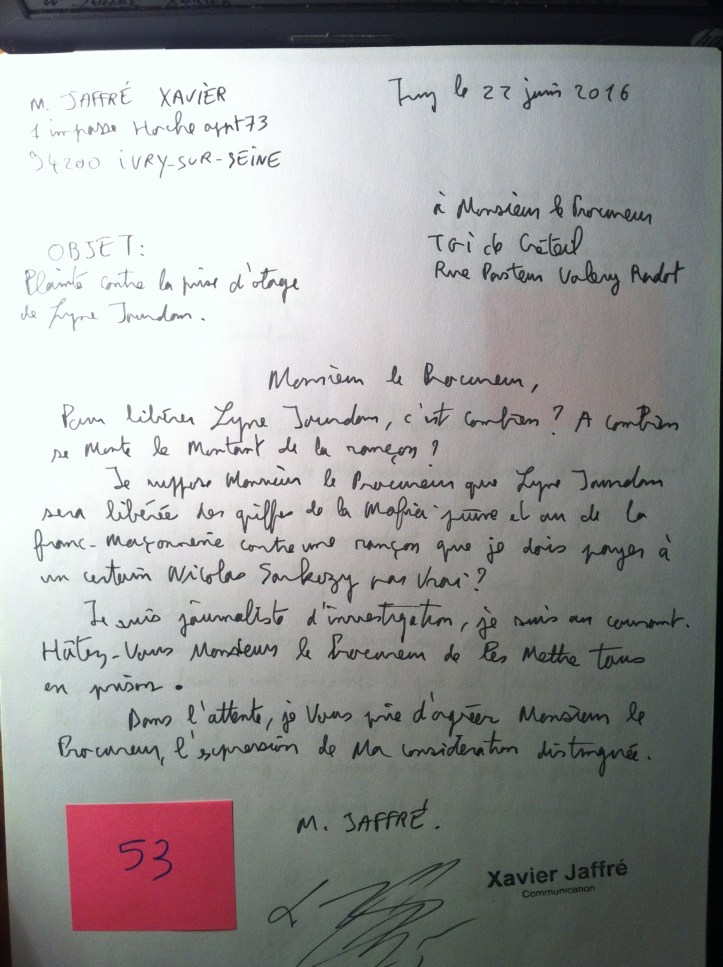 M. JAFFRÉ XAVIER
Ivry le 22 juin 2016
1 impasse Hoche appt 73
94200 IVRY-SUR-SEINE
à Monsieur le Procureur
TGI de Créteil
Rue Pasteur Valery Radot
OBJET:
Plainte contre la prise d'otage
de Lyne Jourdan.
Monsieur le Procureur,
Pour libérer Lyne Jourdan, c'est combien ? A combien
se monte le montant de la rançon ?
Je suppose Monsieur le Procureur que Lyne Jourdan
sera libérée des griffes de la Mafia juive et ou de la
franc-maçonnerie contre une rançon que je dois payer à
un certain Nicolas Sarkozy pas vrai ?
Je suis journaliste d'investigation, je suis au courant.
Hâtez-vous Monsieur le Procureur de les mettre tous
en prison.
Dans l'attente, je vous prie d'agréer Monsieur le
Procureur, l'expression de ma considération distinguée.
M. JAFFRÉ.
53
Xavier Jaffré
Communication